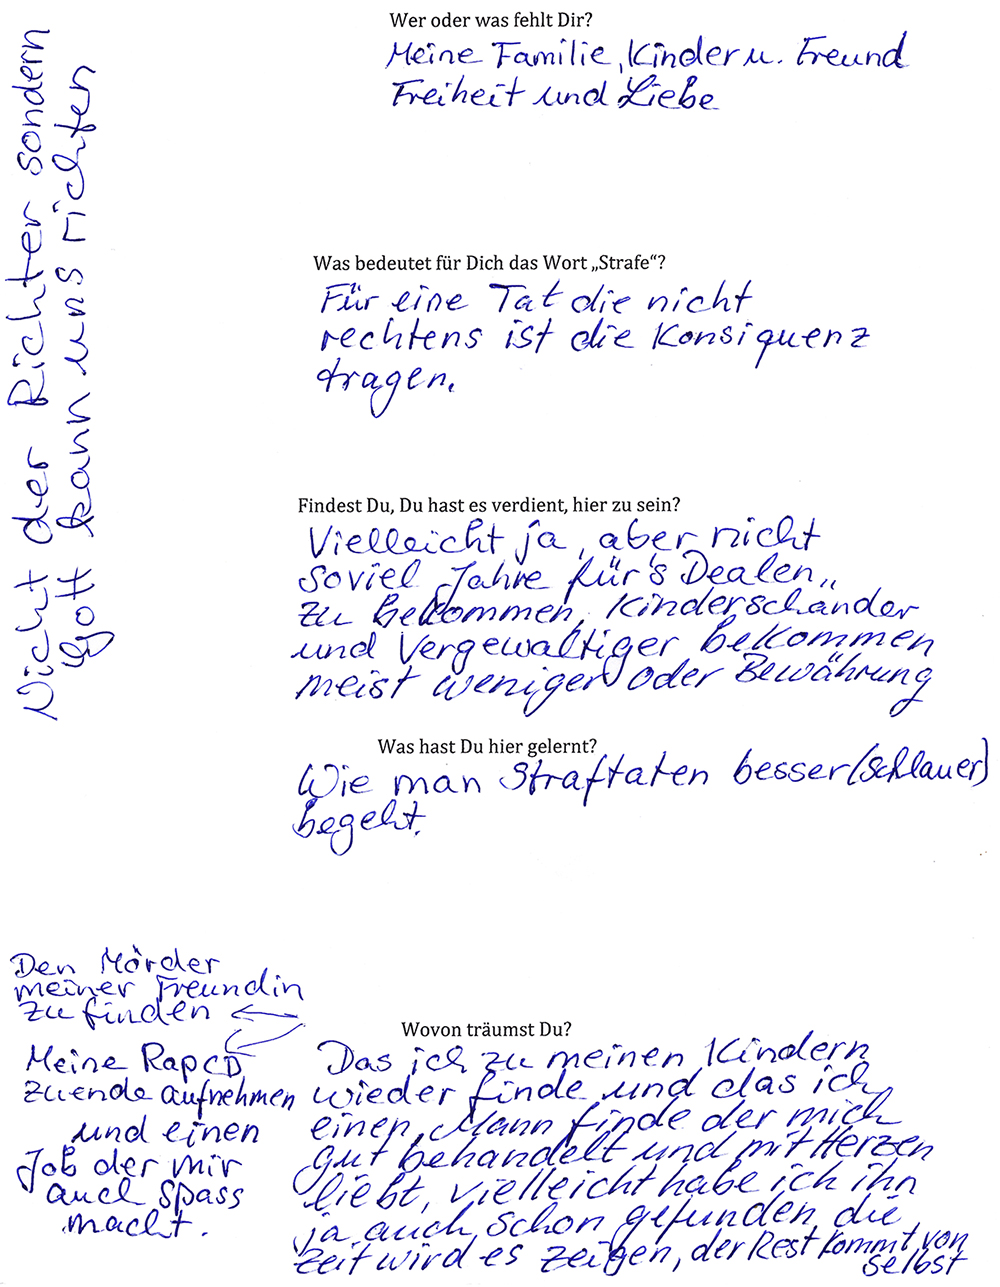 Nicht der Richter sondern
Gott kann uns richten
Wer oder was fehlt Dir?
Meine Familie, Kinder u. Freund
Freiheit und Liebe
Was bedeutet für Dich das Wort „Strafe“?
Für eine Tat die nicht
rechtens ist die Konsiquenz
tragen.
Findest Du, Du hast es verdient, hier zu sein?
Vielleicht ja, aber nicht
soviel Jahre für's Dealen,,
zu bekommen, Kinderschänder
und Vergewaltiger bekommen
meist weniger oder Bewährung
Was hast Du hier gelernt?
Wie man Straftaten besser (schlauer)
begeht.
Den Mörder
meiner Freundin
zu finden
Meine Rap CD
zuende aufnehmen
und einen
Job der mir
auch spass
macht.
Wovon träumst Du?
Das ich zu meinen Kindern
wieder finde und das ich
einen Mann finde der mich
gut behandelt und mit Herzen
liebt, vielleicht habe ich ihn
ja auch schon gefunden, die
Zeit wird es zeigen, der Rest kommt von
selbst